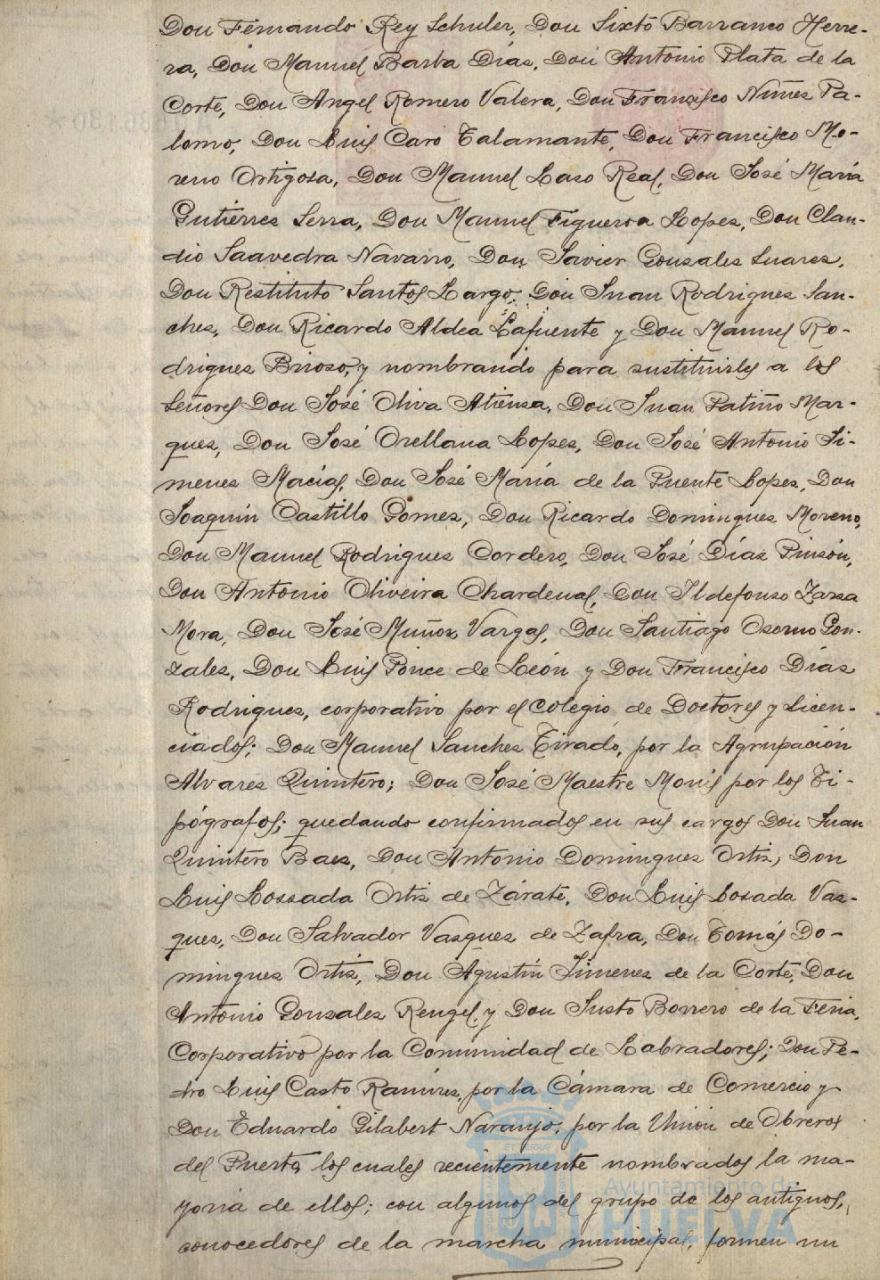 Don Fernando Rey Schuler, Don Sixto Barranco Herre-
ra, Don Manuel Barba Días, Don Antonio Plata de la
Corte, Don Angel Romero Valera, Don Francisco Nuñes Pa-
lomo, Don Luis Caro Talamante, Don Francisco Mo-
reno Ortigosa, Don Manuel Laso Real, Don José María
Gutiérres Serra, Don Manuel Figueroa Lopes, Don Clau-
dio Saavedra Navarro, Don Javier Gonsales Suares,
Don Restituto Santos Largo, Don Juan Rodrigues San-
ches, Don Ricardo Aldea Lafuente y Don Manuel Ro-
drigues Brioso, y nombrando para sustituirles a los
Señores Don José Oliva Atiensa, Don Juan Patiño Mar-
ques, Don José Orellana Lopes, Don José Antonio Ji-
menes Macías, Don José María de la Puente Lopes, Don
Joaquín Castillo Gomes, Don Ricardo Domingues Moreno,
Don Manuel Rodrigues Cordero, Don José Días Pinsón,
Don Antonio Oliveira Chardenal, Don Ildefonso Zarsa
Mora, Don José Muñoz Vargas, Don Santiago Osorno Gon-
zales, Don Luis Ponce de León y Don Francisco Días
Rodrigues, corporativo por el Colegio de Doctores y Licen-
ciados; Don Manuel Sanches Tirado, por la Agrupación
Alvares Quintero; Don José Maestre Monís por los Ti-
pógrafos; quedando confirmados en sus cargos Don Juan
Quintero Baes, Don Antonio Domingues Ortis, Don
Luis Lossada Ortis de Zárate, Don Luis Losada Vas-
ques, Don Salvador Vasques de Zafra, Don Tomás Do-
mingues Ortis, Don Agustín Jimenes de la Corte, Don
Antonio Gonsales Rengel y Don Justo Borrero de la Feria,
Corporativo por la Comunidad de Labradores; Don Pe-
dro Luis Casto Ramires, por la Cámara de Comercio y
Don Eduardo Gilabert Naranjo, por la Unión de Obreros
del Puerto, los cuales recientemente nombrados la ma-
yoria de ellos; con algunos del grupo de los antiguos,
conocedores de la marcha municipal, formen un
Ayuntamiento de
HUELVA